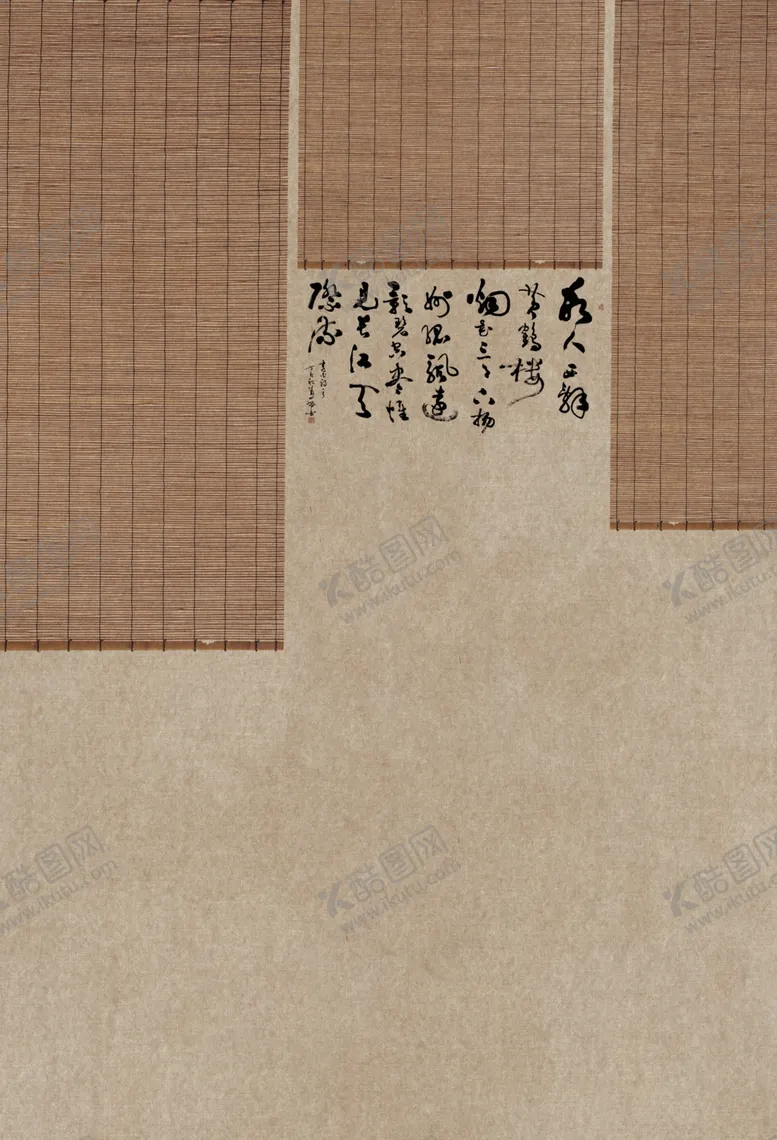 故人西辭
黄鶴楼
烟花三月下扬
州孤帆遠
影碧空尽惟
見長江天
際流
酷图网
www.ikutu.com
酷图网
www.ikutu.com
酷图网
www.ikutu.com
酷图网
www.ikutu.com
酷图网
www.ikutu.com